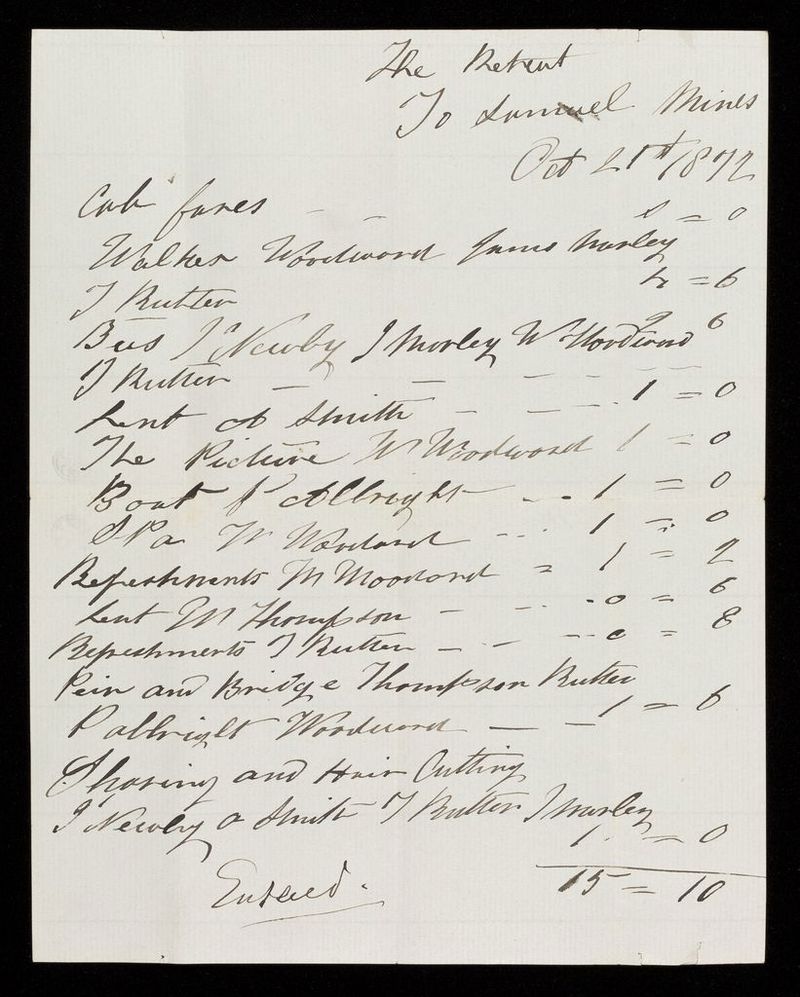 The Retreat
To Samuel Mines
Oct 21st 1872
Cab fares - - 0 = 0
Walker Woodward James Marley
J Rutter 4 = 6
Bus J Newby J Marley W Woodward 2 6
J Rutter - - - - - 1 = 0
Lent A Smith - - - . 1 = 0
The Picture W Woodward 1 = 0
Boat P Allbright - - . 1 = 0
SPa W Woodward - - . 1 = 0
Refreshments W Woodward = 1 = 2
Lent W Thompson - - . - 0 = 6
Refreshments J Rutter - - - - 0 = 8
Peir and Bridge Thompson Rutter
P allbright Woodward - - 1 = 6
Shaving and Hair Cutting
J Newby A Smith J Rutter J Marley
1 . = 0
15 = 10
Entered.